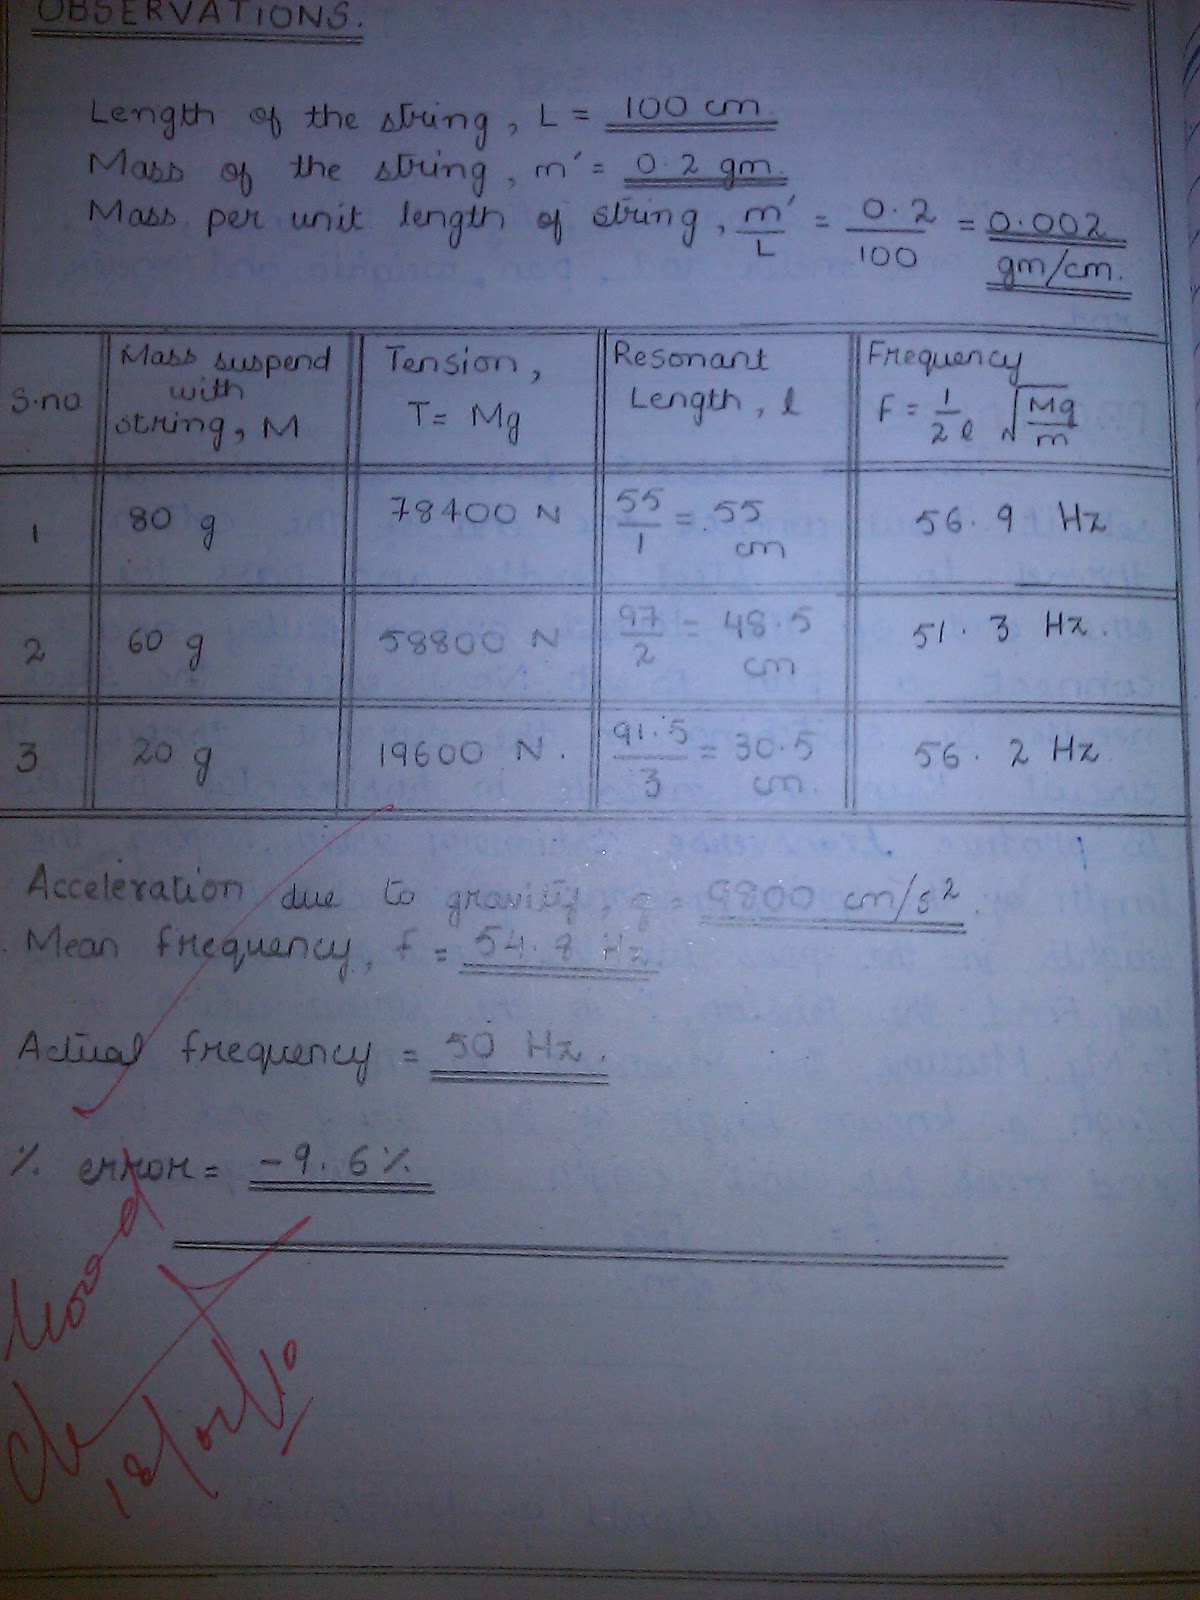 OBSERVATIONS.
Length of the string, L = 100 cm.
Mass of the string, m' = 0.2 gm.
Mass per unit length of string, m'/L = 0.2/100 = 0.002 gm/cm.
S.no | Mass suspend with string, M | Tension, T = Mg | Resonant Length, l | Frequency F = 1/2l √Mg/m
1 | 80 g | 78400 N | 55/1 = 55 cm | 56.9 Hz
2 | 60 g | 58800 N | 97/2 = 48.5 cm | 51.3 Hz.
3 | 20 g | 19600 N. | 91.5/3 = 30.5 cm | 56.2 Hz
Acceleration due to gravity, g = 9800 cm/s²
Mean frequency, f = 54.8 Hz
Actual frequency = 50 Hz.
% error = -9.6%
Good